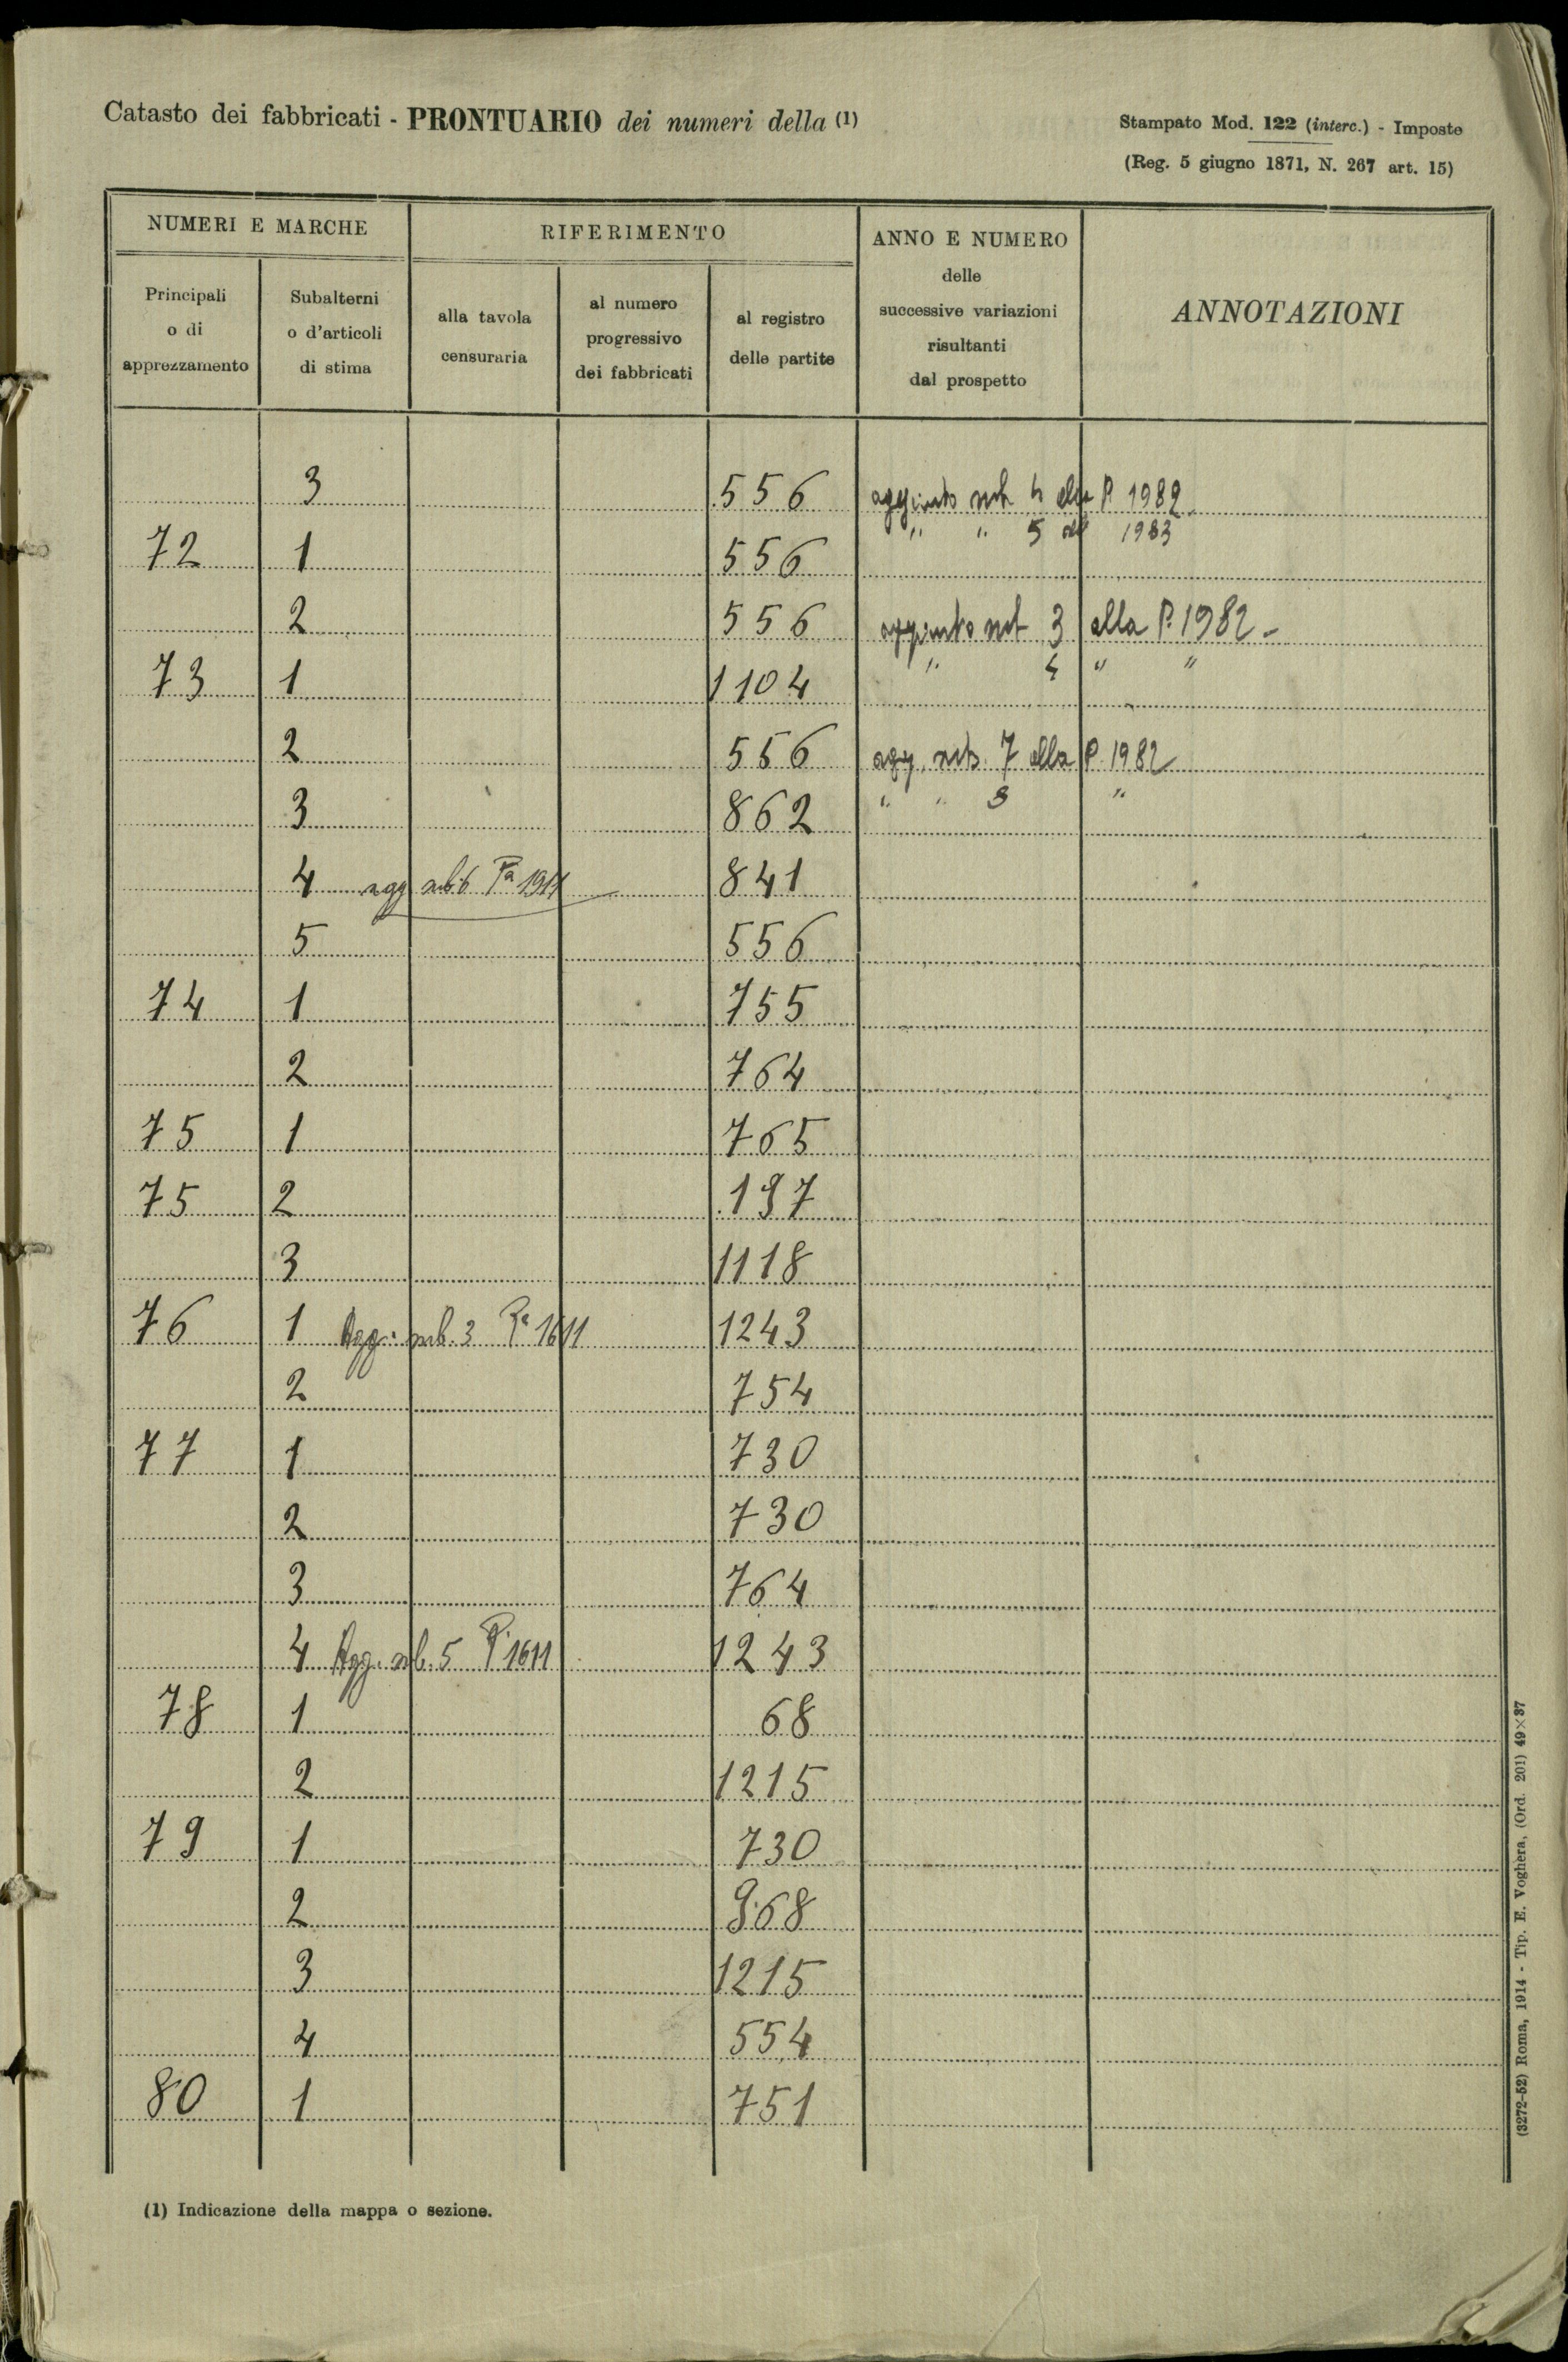 Catasto dei fabbricati - PRONTUARIO dei numeri della (1)
Stampato Mod. 122 (interc.) - Imposte
(Reg. 5 giugno 1871, N. 267 art. 15)
NUMERI E MARCHE
RIFERIMENTO
ANNO E NUMERO
delle
successive variazioni
risultanti
dal prospetto
ANNOTAZIONI
Principali
o di
apprezzamento
Subalterni
o d'articoli
di stima
alla tavola
censuraria
al numero
progressivo
dei fabbricati
al registro
delle partite
3 556 aggiunto sub 4 alla P. 1982
" " 5 1983
72 1 556
2 556 aggiunto sub 3 alla P. 1982 -
" 4 " "
73 1 1104
2 556 agg. sub. 7 alla P. 1982
" " 8 "
3 862
4 agg sub 6 Pa 1911 841
5 556
74 1 755
2 764
75 1 765
75 2 197
3 1118
76 1 Agg. sub. 3 Pa 1611 1243
2 754
77 1 730
2 730
3 764
4 Agg. sub. 5 Pa 1611 1243
78 1 68
2 1215
79 1 730
2 968
3 1215
4 554
80 1 751
(1) Indicazione della mappa o sezione.
(3272-52) Roma, 1914 - Tip. E. Voghera, (Ord. 201) 49×37